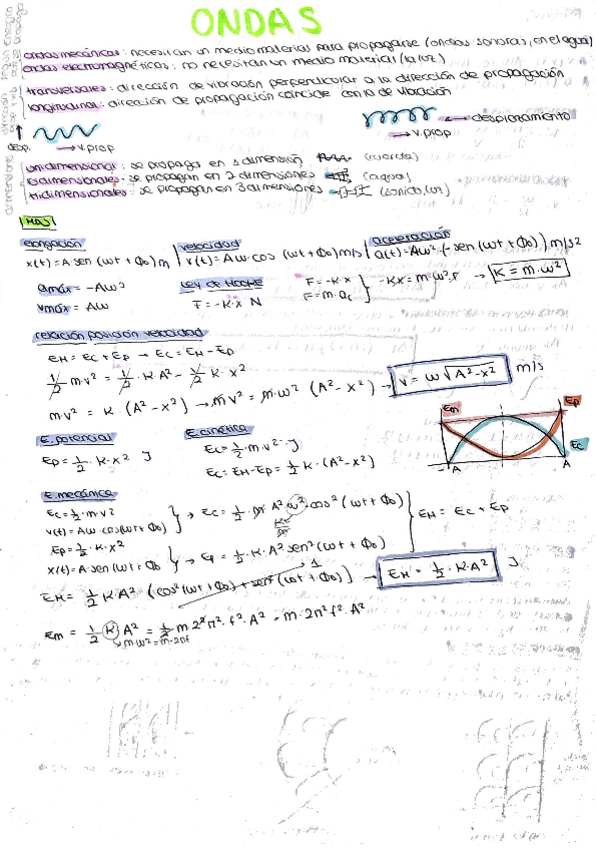 ONDAS
ondas mecánicas: necesitan un medio material para propagarse (ondas sonoras, en el agua)
ondas electromagnéticas: no necesitan un medio material (la luz)
transversales: dirección de vibración perpendicular a la dirección de propagación
longitudinal: dirección de propagación coincide con la de vibración
desp. → v.prop
← desplazamiento
→ v.prop
unidimensional: se propaga en 1 dimensión (cuerda)
bidimensionales: se propagan en 2 dimensiones (agua)
tridimensionales: se propagan en 3 dimensiones (sonido, luz)
MAS
elongación velocidad aceleración
x(t)=A·sen (ωt+Φ₀) m v(t)=Aω·cos (ωt+Φ₀) m/s a(t)=Aω²·(-sen (ωt+Φ₀)) m/s2
amáx = -Aω² Ley de Hooke F=-K·x
vmáx = Aω F=-K·x N F=m·ac } -Kx=m·ω²·r → K = m·ω²
relación posición velocidad
EM = Ec + Ep → Ec = EM - Ep
1/2 m·v² = 1/2 K·A² - 1/2 K·x²
m·v² = K (A²-x²) → m·v² = m·ω² (A²-x²) → v = ω√A²-x² m/s
Em Ep Ec
-A A
E.potencial E.cinética
Ep = 1/2 · K·x² J Ec = 1/2·m·v² · J
Ec = EM-Ep = 1/2 K·(A²-x²)
E.mecánica
Ec = 1/2·m·v²
v(t)=Aω·cos(ωt+Φ₀) } → Ec = 1/2·m·A²·ω²·cos² (ωt+Φ₀)
K/m
EM = Ec + Ep
Ep = 1/2·K·x²
x(t)=A·sen(ωt+Φ₀ } → Ep = 1/2·K·A² sen² (ωt+Φ₀)
1
EM = 1/2 K·A² (cos² (ωt+Φ₀) + sen² (ωt+Φ₀)) → EM = 1/2·K·A² J
Em = 1/2 K A² = 1/2 m·2²π²·f²·A² = m·2π²f²·A²
→ mω² = m·2πf